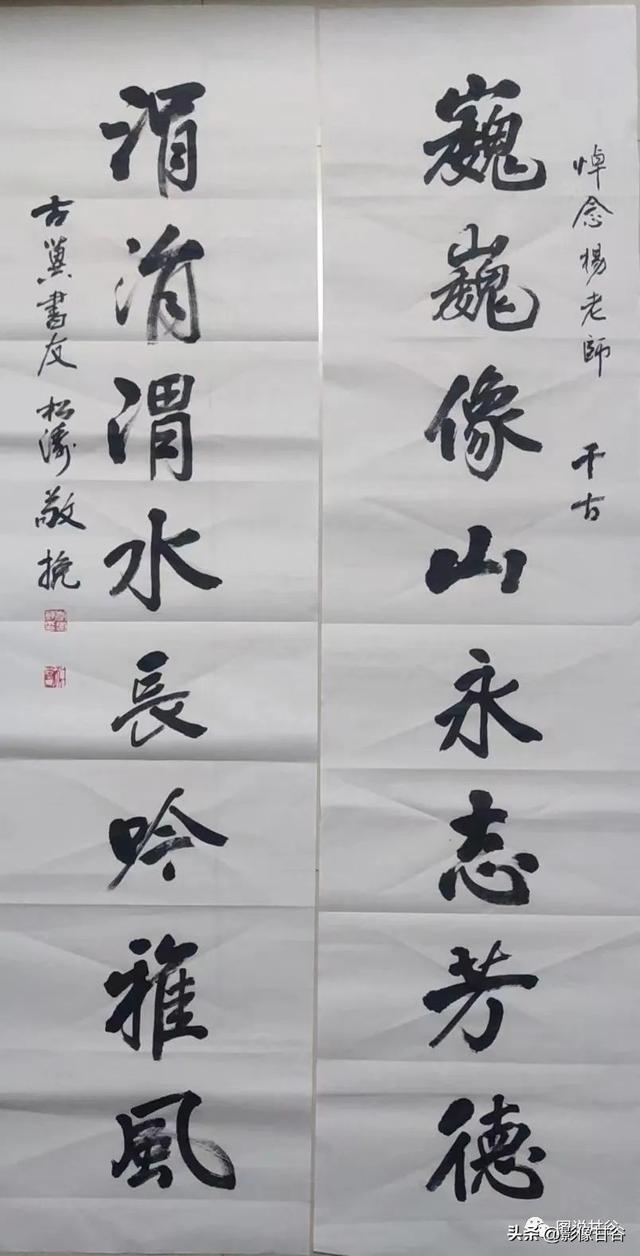 悼念楊老師 千古
巍巍像山永志芳德
涓涓渭水長吟雅風
古冀書友 松濤敬挽
图说甘谷
头条@影像甘谷